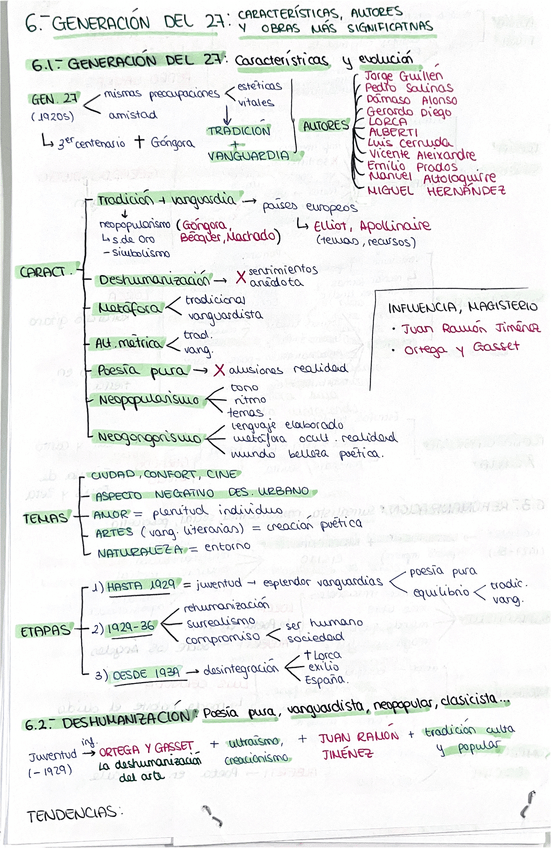 6.- GENERACIÓN DEL 27: CARACTERÍSTICAS, AUTORES
Y OBRAS MÁS SIGNIFICATIVAS
6.1- GENERACIÓN DEL 27: Características y evolución
GEN. 27 mismas preocupaciones estéticas
vitales
(1920s) amistad
↳ 3er centenario + Góngora
TRADICIÓN
+
VANGUARDIA
AUTORES
Jorge Guillén
Pedro Salinas
Dámaso Alonso
Gerardo Diego
LORCA
ALBERTI
Luis Cernuda
Vicente Aleixandre
Emilio Prados
Manuel Altolaguirre
MIGUEL HERNÁNDEZ
CARACT.
Tradición + vanguardia → países europeos
neopopularismo (Góngora,
↳ s. de Oro Bécquer, Machado)
- simbolismo
↳ Elliot, Apollinaire
(temas, recursos)
Deshumanización → X sentimientos
anécdota
Metáfora tradicional
vanguardista
Alt. métrica trad.
vang.
Poesía pura → X alusiones realidad
Neopopularismo tono
ritmo
temas
Neogongorismo lenguaje elaborado
metáfora ocult. realidad
mundo belleza poética.
INFLUENCIA, MAGISTERIO
· Juan Ramón Jiménez
· Ortega y Gasset
TEMAS
CIUDAD, CONFORT, CINE
ASPECTO NEGATIVO DES. URBANO
AMOR = plenitud individuo
ARTES (vang. literarias) = creación poética
NATURALEZA = entorno
ETAPAS
1) HASTA 1929 = juventud → esplendor vanguardias poesía pura
equilibrio tradic.
vang.
2) 1929-36 rehumanización
surrealismo
compromiso ser humano
sociedad
3) DESDE 1939 → desintegración † Lorca
exilio
España.
6.2.- DESHUMANIZACIÓN: Poesía pura, vanguardista, neopopular, clasicista...
Juventud inf. → ORTEGA Y GASSET + ultraísmo, + JUAN RAMÓN + tradición culta
(-1929) La deshumanización creacionismo JIMÉNEZ y popular
del arte
TENDENCIAS: